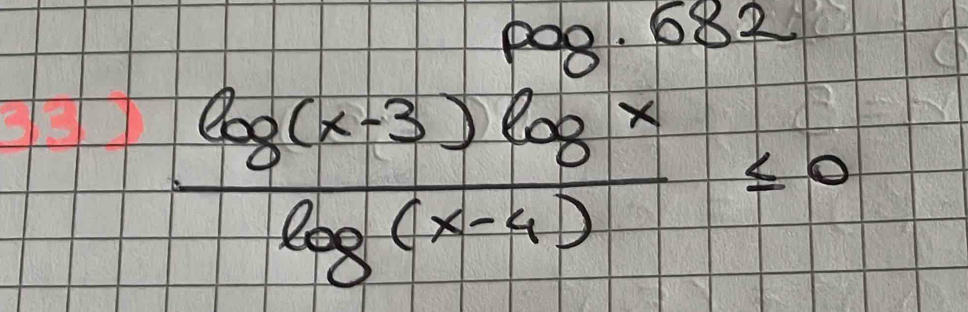 pag. 682
33) log(x-3) log x / log(x-4) ≤ 0